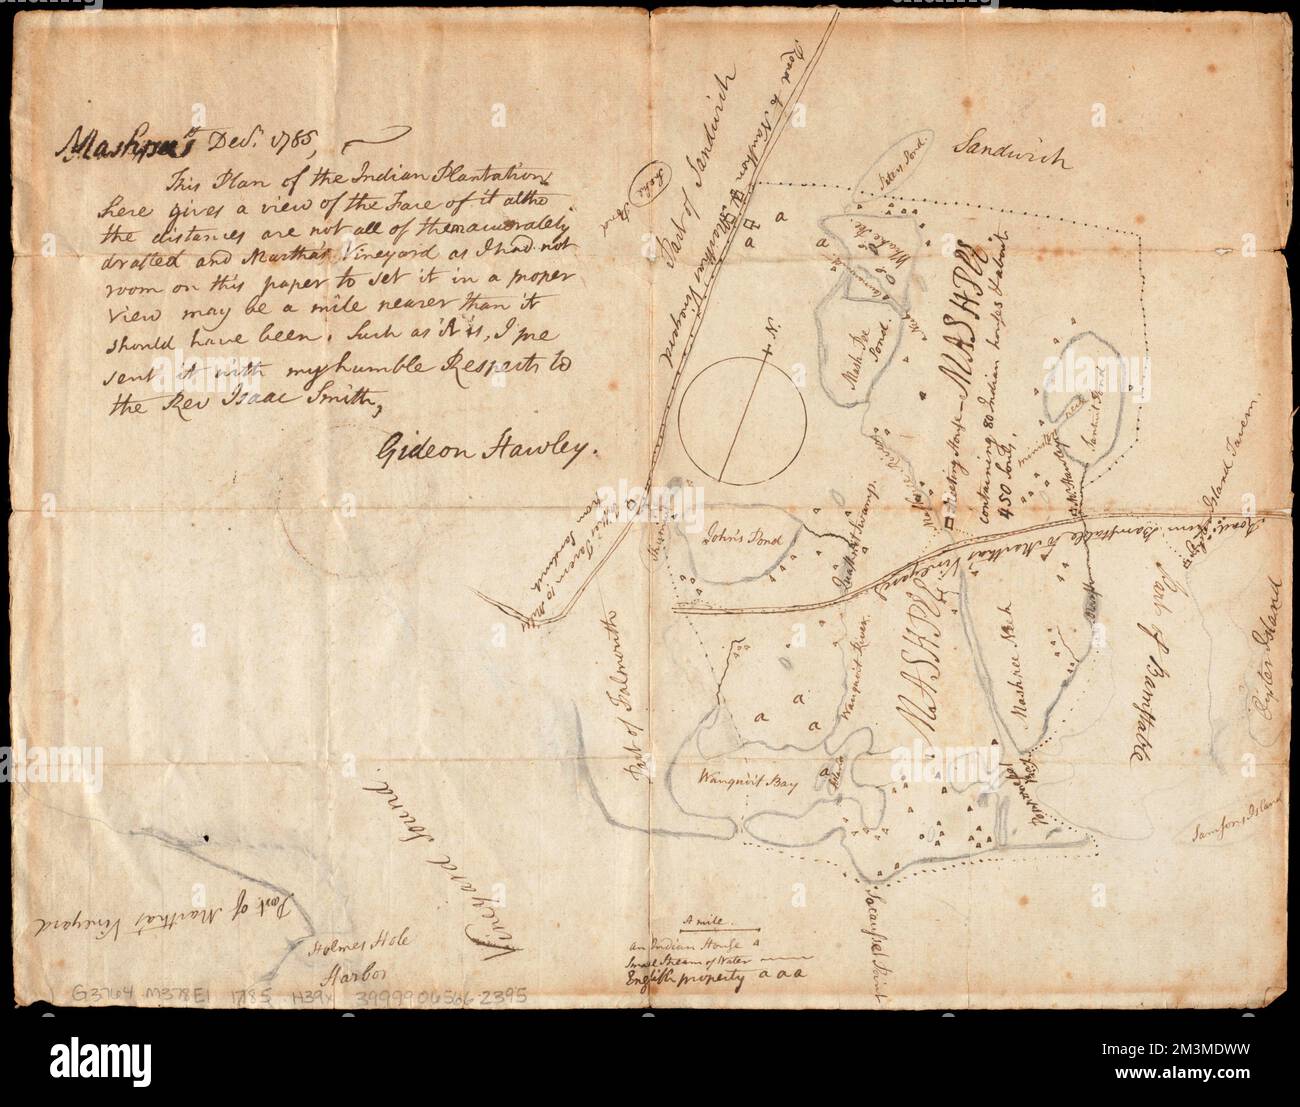 Mashpee Decr. 1785,
This Plan of the Indian Plantation
here gives a view of the Face of it altho
the distances are not all of them accurately
drafted and Martha's Vineyard as I had not
room on this paper to set it in a proper
view may be a mile nearer than it
should have been. Such as it is, I pre
sent it with my humble Respects to
the Rev Isaac Smith,
Gideon Hawley.
Sandwich
Part of Sandwich
Peters Pond
Mash Pee
Pond.
MASHPEE
containing 80 Indian houses & about
450 Souls.
Meeting House
Santuit Pond
N
John's Pond
Quashnet Swamp.
Road from Barnstable to Marthas Vineyard
Island Tavern.
Part of Barnstable
Oyster Island
Samsons Island
Mashpee Neck
MASHPEE
Wauquoit River.
Wauquoit Bay
Part of Falmouth
Tavern 10 Miles
from Sandwich
Vineyard Sound.
Part of Martha's Vineyard
Holmes Hole
Harbor
A mile.
an Indian House
Small Stream of Water
English property a a a
G3764 .M378E1 1785 .H39x 39999065662395
alamy
Image ID: 2M3MDWW
www.alamy.com